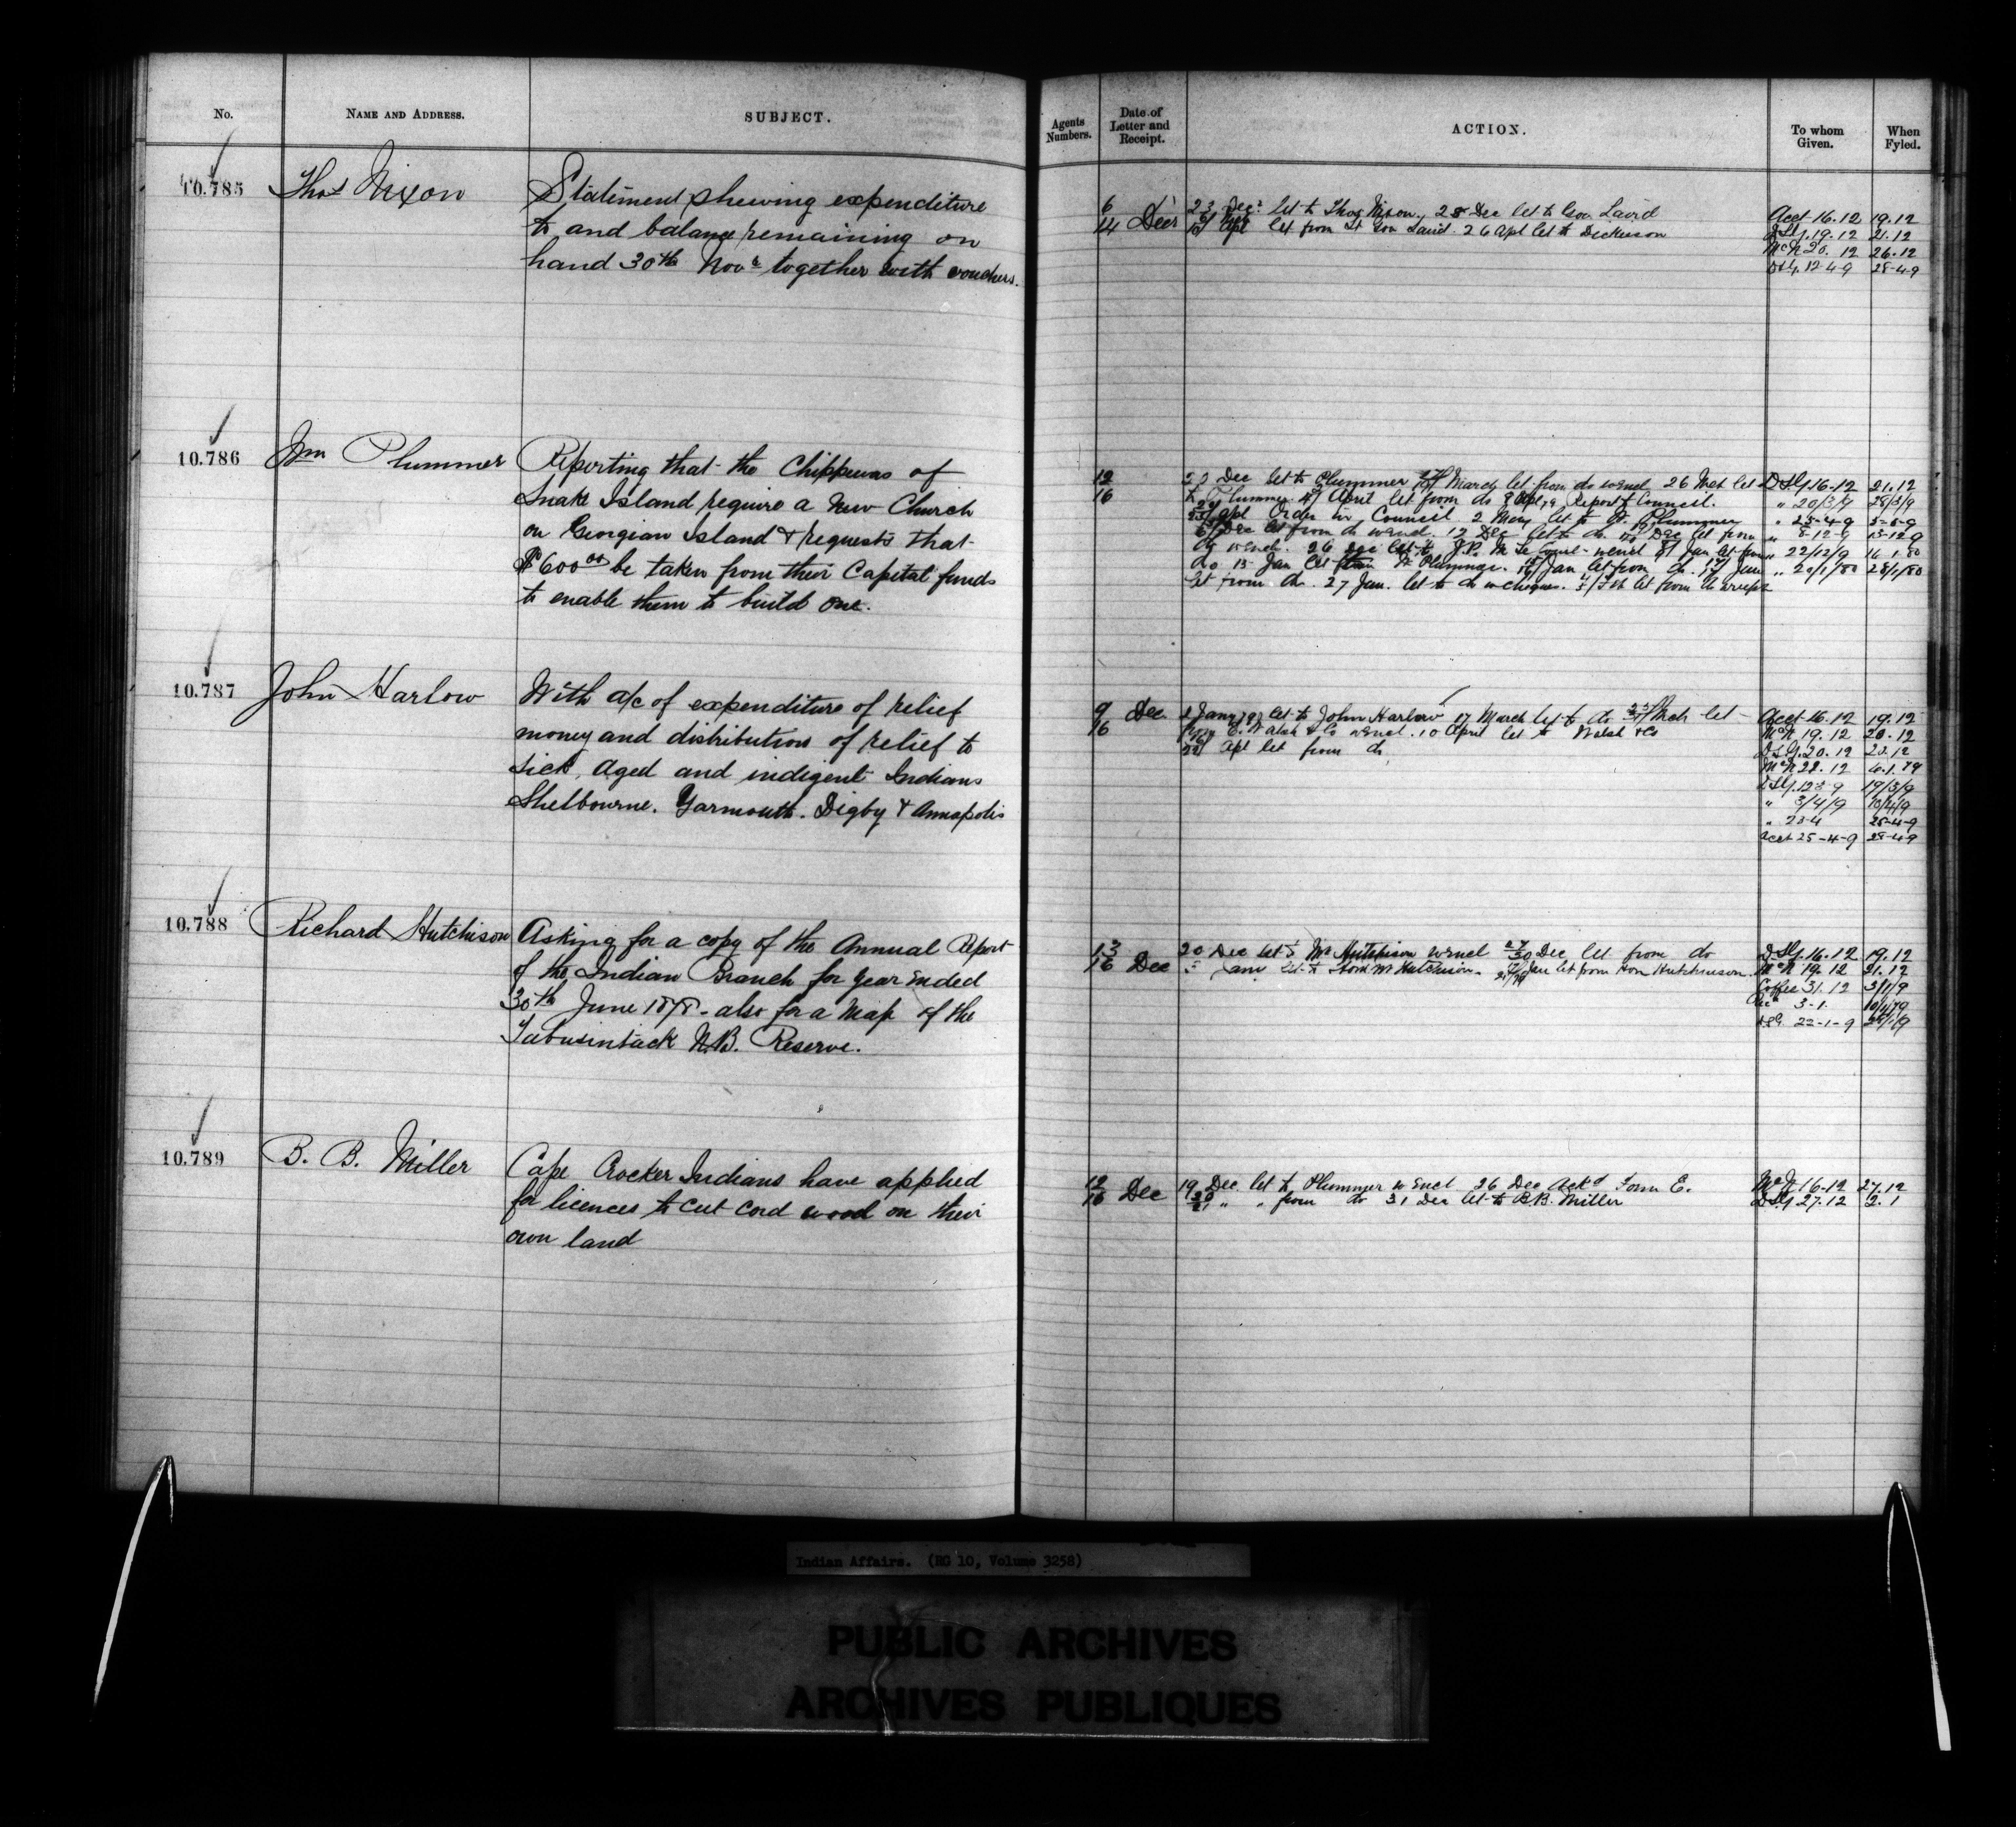 No. NAME AND ADDRESS. SUBJECT. Agents Numbers. Date of Letter and Receipt. ACTION. To whom Given. When Fyled.
10.785 Thos Nixon Statement shewing expenditure
to and balance remaining on
hand 30th Novr together with vouchers.
6
14 Decr
23 Decr let to Thos Nixon, 28 Dec let to Gov Laird
Apl let from Lt Gov Laird 26 Apl let to Dickieson
Acct 16.12 19.12
19.12 21.12
McN 20.12 26.12
12-4-9 28-4-9
10.786 Wm Plummer Reporting that the Chippewas of
Snake Island require a New Church
on Georgian Island & requests that
$600 00 be taken from their Capital funds
to enable them to build one.
12
16
Dec let to Plummer March let from do w encl 26 Mch let
to Plummer April let from do Report of Council.
Apl Order in Council. 2 May let to Plummer
Dec let from do w encl. 12 Dec let to do Dec let from
do w encl. 26 Dec let to J.P. Jan let from
do 15 Jan let Plummer. Jan let from do. Jan
let from do. 27 Jan. let to do w cheque. Feb let from do
16-12 21.12
" 20/3/9 28/3/9
" 25-4-9 5-5-9
" 8-12-9 13-12-9
" 22/12/9 16 1.80
" 20/1/80 28/1/80
10.787 John Harlow With a/c of expenditure of relief
money and distribution of relief to
sick, aged and indigent Indians
Shelbourne. Yarmouth. Digby & Annapolis
9
16 Dec
Jany let to John Harlow 17 March let to do Mch let
E. Walsh & Co w encl. 10 April let to Walsh & Co
Apl let from do
Acct 16.12 19.12
McN 19.12 20.12
20.12
McN 6.1.79
19/3/9
" 3/4/9 10/4/9
" 23-4 25-4-9
Acct 25-4-9 28-4-9
10.788 Richard Hutchison Asking for a copy of the Annual Report
of the Indian Branch for year ended
30th June 1878 - also for a map of the
Tabusintack N.B. Reserve.
13
16 Dec
20 Dec let to Mr Hutchison w encl Dec let from do
Jan let to Hon R Hutchison. Jan let from Hon Hutchinson.
16.12 19.12
McN 19.12 21.12
Coffee 31.12 3/1/9
3-1. 10/1/79
22-1-9
10.789 B. B. Miller Cape Crocker Indians have applied
for licences to cut cord wood on their
own land
12
16 Dec
19 Dec let to Plummer w encl 26 Dec Ackd Form E.
" " from do 31 Dec let to B.B. Miller
16-12 27.12
27.12 2.1
Indian Affairs. (RG 10, Volume 3258)
PUBLIC ARCHIVES
ARCHIVES PUBLIQUES